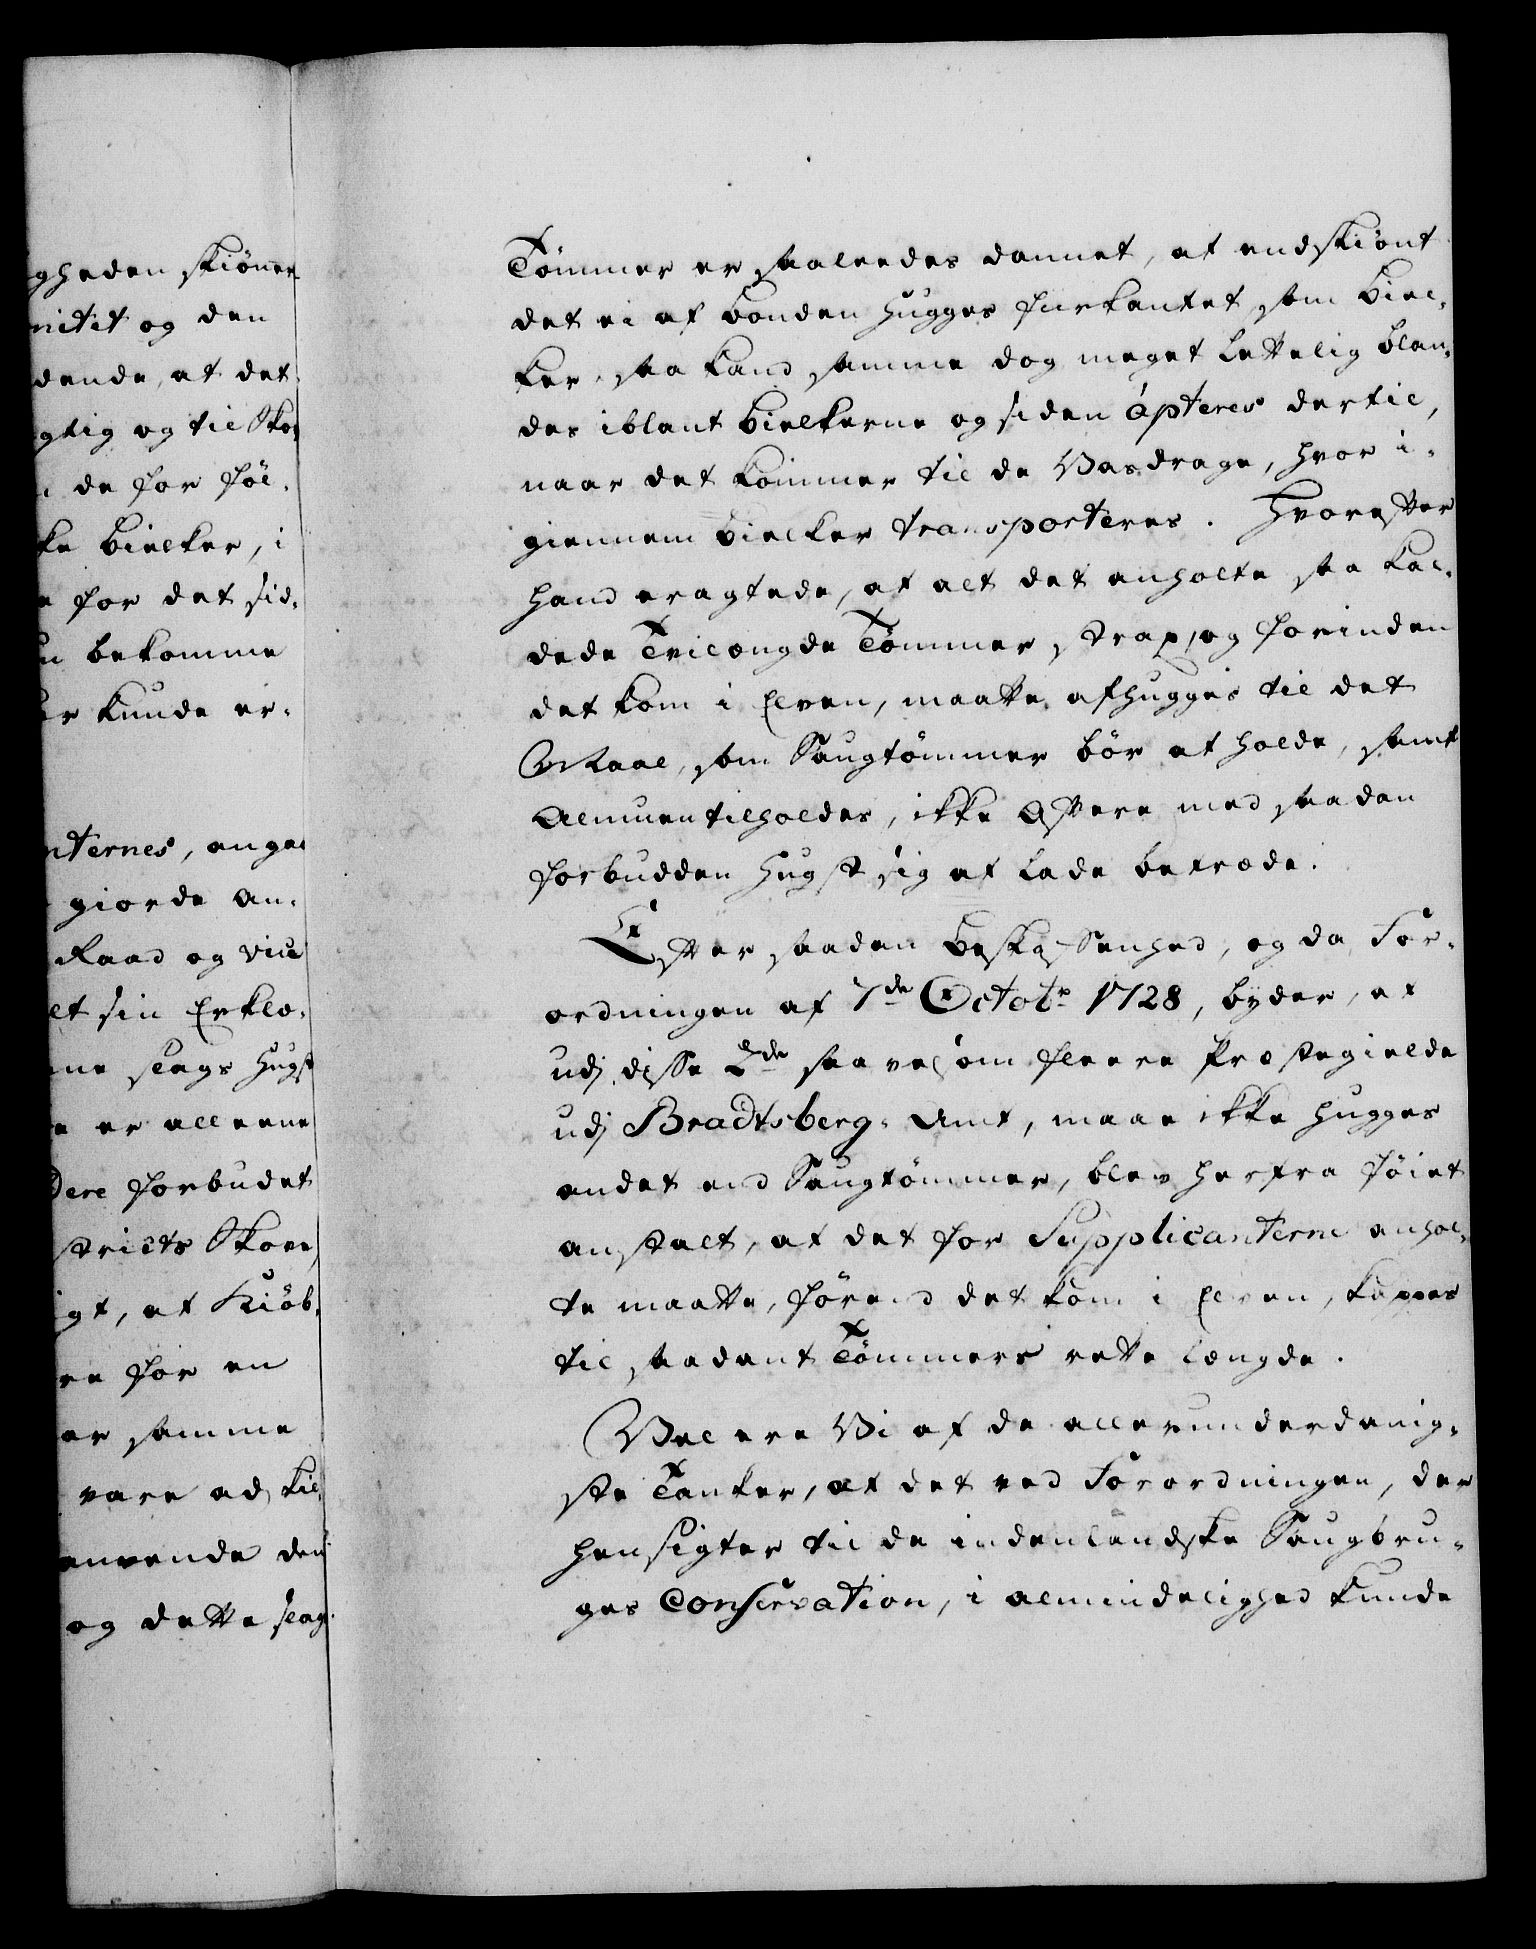 gheden skiönner
nitet og den
dende, at det
gtig og til Sko-
de for föl-
ke Bielker, i
for det sid-
bekomme
er kunde er-
nternes, angaa
giorde an-
Raad og vice
lt sin Erklæ-
ne slags Hugst
e er alleene
dere forbudet
stricts Skove
igt, at Kiöb-
re for en
er samme
vare ad kil
anvende den
og dette slag
Tömmer er saaledes dannet, at endskiönt
det ei af Bonden hugges fiirkantet som Biel-
ker, saa kand samme dog meget lettelig blan-
des iblant Bielkerne og siden apteres dertil,
naar det kommer til de Vasdrage, hvor i-
giennem Bielker transporteres. Hvorefter
hand eragtede, at alt det anholte saa kal-
dede Tvilængde Tömmer, strax, og forinden
det kom i Elven, maatte afhugges til det
Maal, som Saugtömmer bör at holde, samt
Almuen tilholdes, ikke oftere med saadan
forbudden Hugst sig at lade betræde.
Efter saadan Beskaffenhed, og da For-
ordningen af 7de Octobr 1728, byder, at
udj disse 2de saavelsom fleere Præstegielde
udj Bradtsberg-Amt, maae ikke hugges
andet end Saugtömmer, blev herfra föiet
anstalt, at det for Supplicanterne anhol-
te maatte, förend det kom i Elven, kappes
til saadant Tömmers rette Længde.
Vel ere Vi af de allerunderdanig-
ste Tanker, at det ved Forordningen, der
hensigter til de indenlandske Saugbru-
ges Conservation, i almindelighed kunde